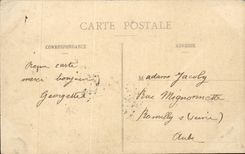 CARTE POSTALE
CORRESPONDANCE
ADRESSE
Reçu carte
merci bonjour
Georgette
Madame Jacoby
Rue Mignonnette
Romilly s/
Aube